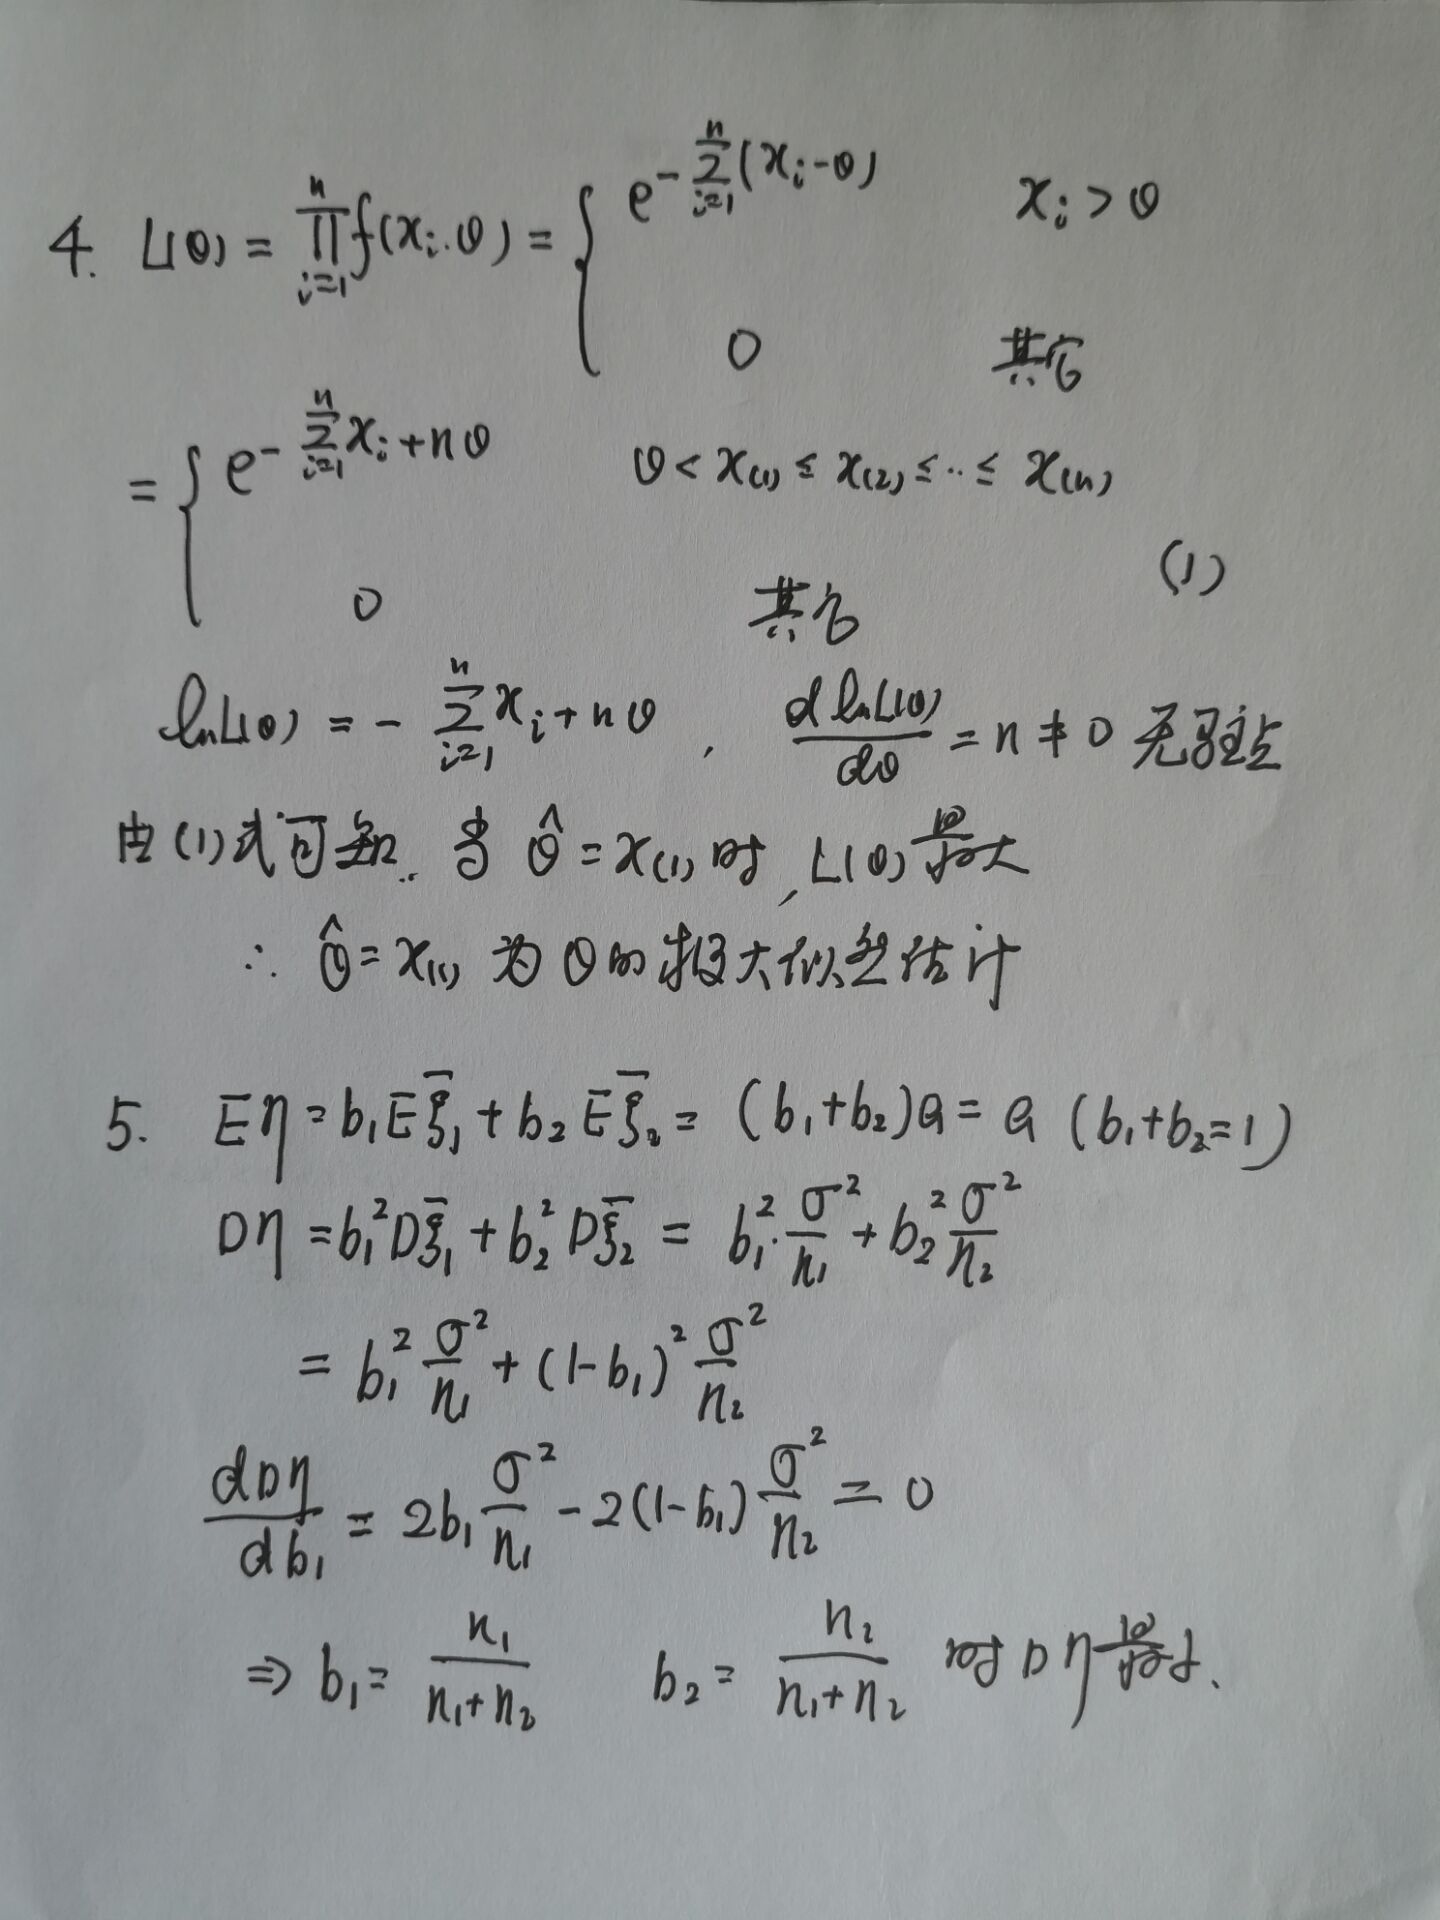 4. L(θ) = ∏_{i=1}^{n} f(x_i.θ) = { e^{-∑_{i=1}^{n}(x_i-θ)}  x_i>θ
0  其它
= { e^{-∑_{i=1}^{n}x_i+nθ}  θ<x_(1)≤x_(2)≤..≤x_(n)
(1)
0  其它
lnL(θ) = -∑_{i=1}^{n}x_i+nθ , dlnL(θ)/dθ = n≠0 无驻点
由(1)式可知.. 当 θ̂=x_(1)时, L(θ)最大
∴ θ̂=x_(1) 为θ的极大似然估计
5. Eη=b₁Eξ̄₁+b₂Eξ̄₂=(b₁+b₂)a=a (b₁+b₂=1)
Dη=b₁²Dξ̄₁+b₂²Dξ̄₂ = b₁²·σ²/n₁+b₂²σ²/n₂
= b₁²σ²/n₁+(1-b₁)²σ²/n₂
dDη/db₁ = 2b₁σ²/n₁-2(1-b₁)σ²/n₂=0
⇒ b₁=n₁/(n₁+n₂)  b₂=n₂/(n₁+n₂) 时Dη最小.